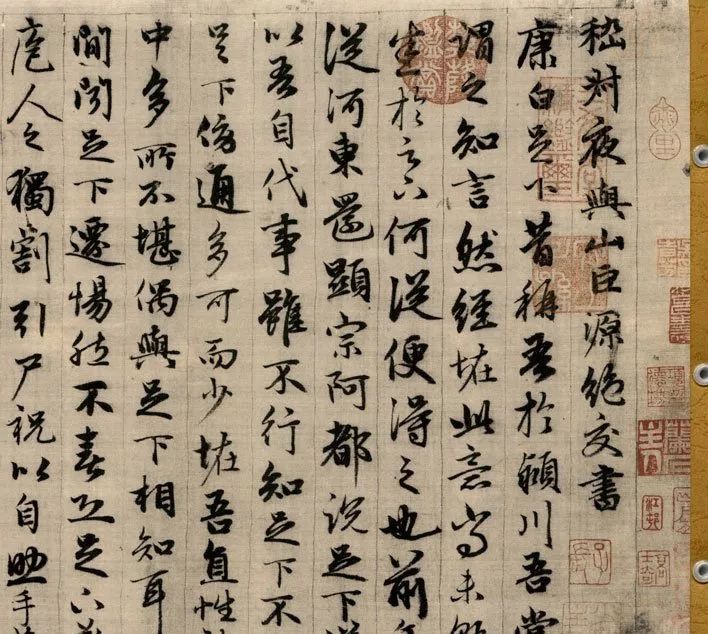 嵇叔夜與山巨源絕交書
康白足下昔稱吾於潁川吾嘗
謂之知言然經怪此意尚未
生於足下何從便得之也前年
從河東還顯宗阿都說足下議
以吾自代事雖不行知足下不
足下傍通多可而少怪吾直性
中多所不堪偶與足下相知耳
間聞足下遷惕然不喜恐足下羞
庖人之獨割引尸祝以自助手